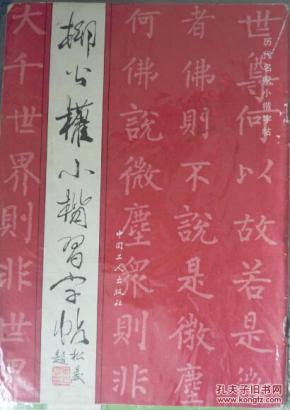 历代名家小楷字帖
世尊何以故若是微
者佛則不說是微塵
何佛說微塵眾則非
大千世界則非世
中国工人出版社
柳公權小楷習字帖
題